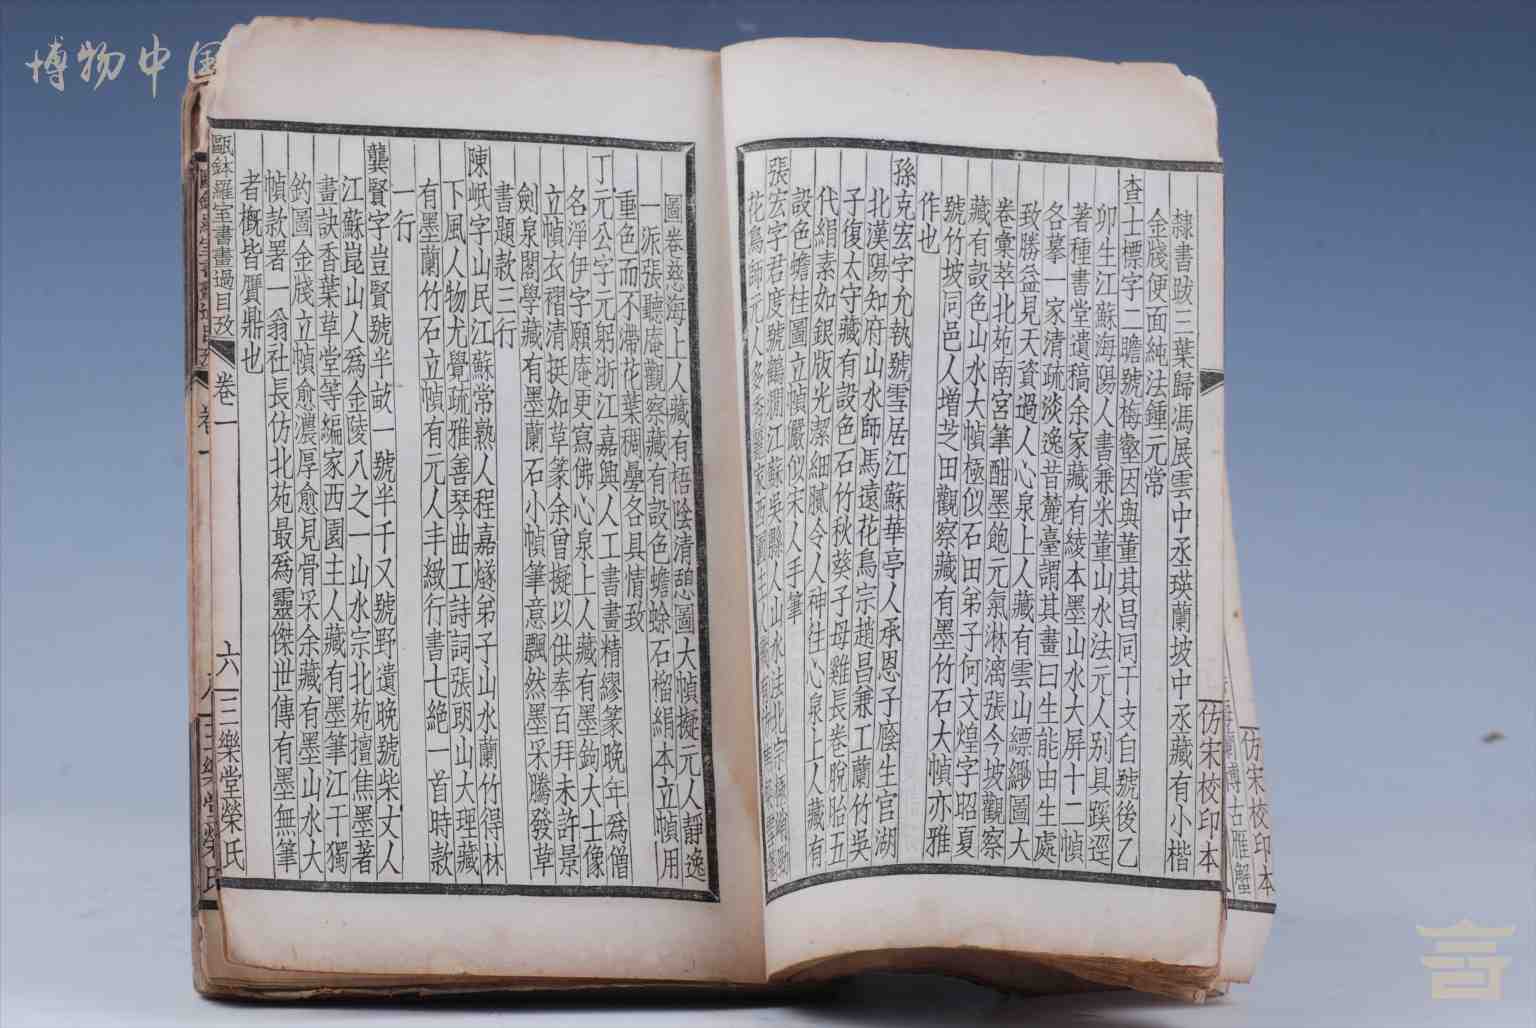 博物中国
仿宋校印本
隸書跋三葉歸馮展雲中丞瑛蘭坡中丞藏有小楷
金牋便面純法鍾元常
查士標字二瞻號梅壑因與董其昌同干支自號後乙
卯生江蘇海陽人書兼米董山水法元人别具蹊逕
著種書堂遺稿余家藏有綾本墨山水大屏十二幀
各摹一家清疏淡逸昔麓臺謂其畫曰生能由生處
致勝益見天資過人心泉上人藏有雲山縹緲圖大
卷彙萃北苑南宮筆酣墨飽元氣淋漓張今坡觀察
藏有設色山水大幀極似石田弟子何文煌字昭夏
號竹坡同邑人增芝田觀察藏有墨竹石大幀亦雅
作也
孫克宏字允執號雪居江蘇華亭人承恩子廕生官湖
北漢陽知府山水師馬遠花鳥宗趙昌兼工蘭竹吳
子復太守藏有設色石竹秋葵子母雞長卷脫胎五
代絹素如銀版光潔細膩令人神往心泉上人藏有
設色蟾桂圖立幀儼似宋人手筆
張宏字君度號鶴澗江蘇吳縣人山水法北宗
花鳥師元人
圖卷慈海上人藏有梧陰清憩圖大幀擬元人靜逸
一派張聽庵觀察藏有設色蟾蜍石榴絹本立幀用
重色而不滯花葉稠疊各具情致
丁元公字元躬浙江嘉興人工書畫精繆篆晚年爲僧
名淨伊字願庵更寫佛心泉上人藏有墨鉤大士像
立幀衣褶清挺如草篆余曾擬以供奉百拜未許景
劍泉閣學藏有墨蘭石小幀筆意飄然墨采騰發草
書題款三行
陳岷字山民江蘇常熟人程嘉燧弟子山水蘭竹得林
下風人物尤覺疏雅善琴曲工詩詞張朗山大理藏
有墨蘭竹石立幀有元人丰緻行書七絶一首時款
一行
龔賢字豈賢號半畝一號半千又號野遺晚號柴丈人
江蘇崑山人爲金陵八之一山水宗北苑擅焦墨著
畫訣香葉草堂等編家西園主人藏有墨筆江干獨
釣圖金牋立幀愈濃厚愈見骨采余藏有墨山水大
幀款署一翁社長仿北苑最爲靈傑世傳有墨無筆
者槪皆贋鼎也
甌鉢羅室書畫過目攷 卷一 六 三樂堂榮氏
仿宋校印本